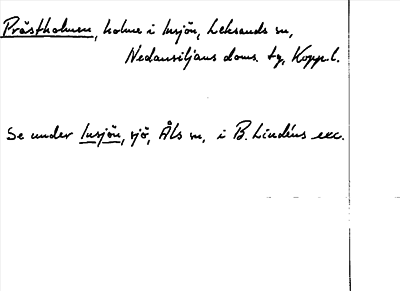 Prästholmen, holme i Insjön, Leksands sn,
Nedansiljans doms. tg, Kopp. l.
Se under Insjön, sjö, Åls sn, i B. Lindéns exc.